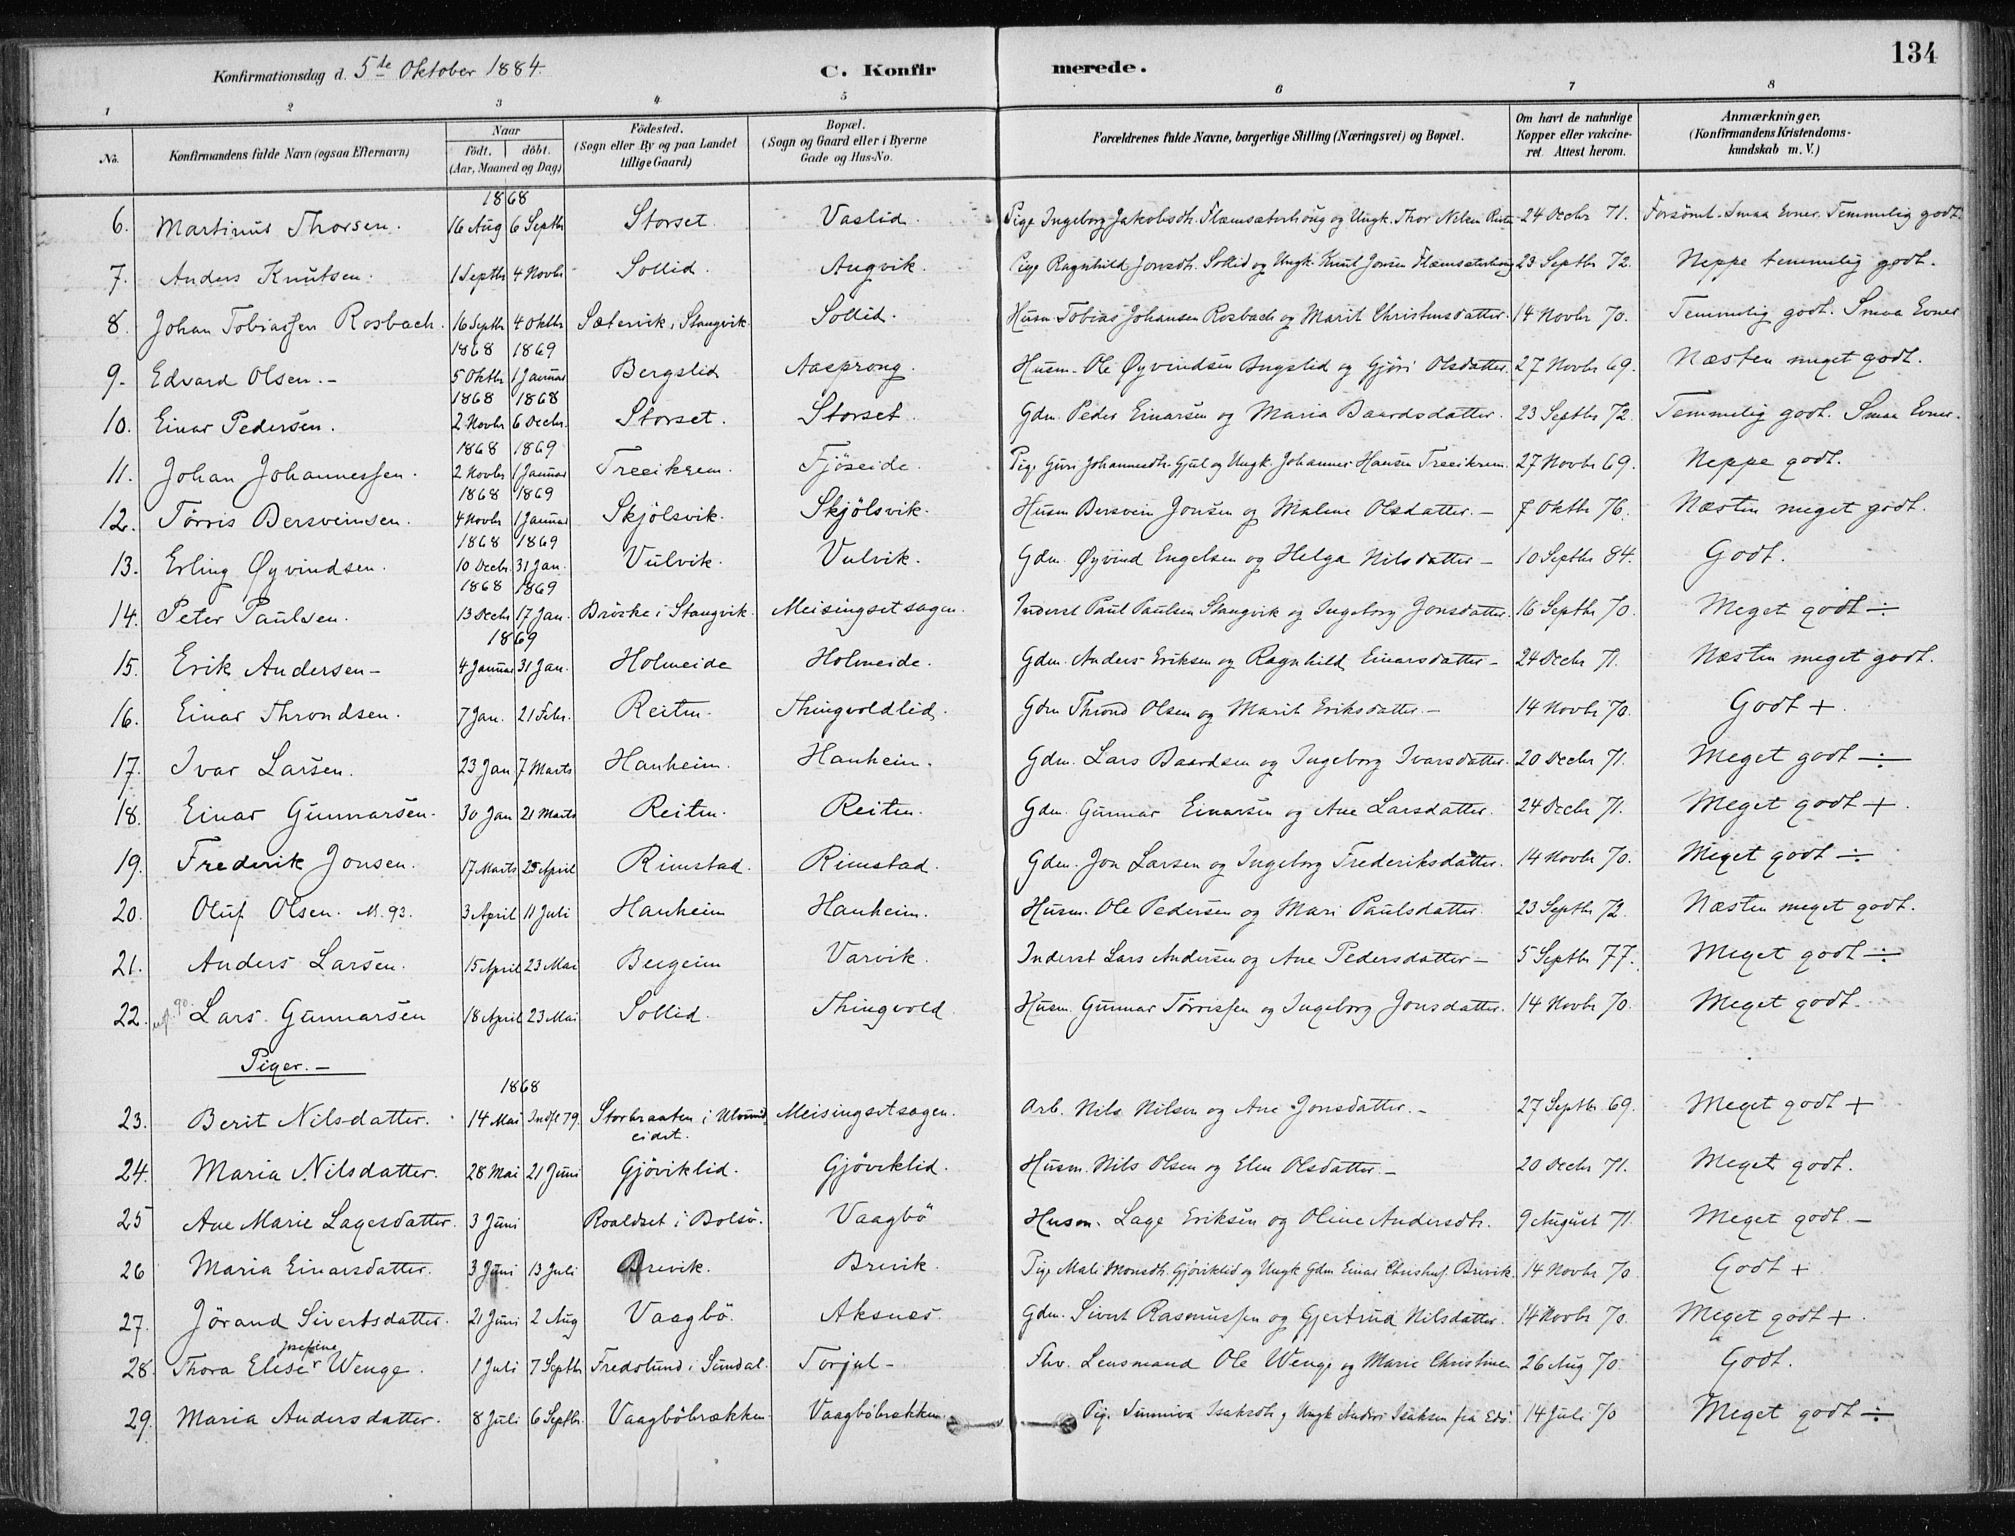 Konfirmationsdag d. 5te Oktober 1884. C. Konfir merede. 134
1 2 3 4 5 6 7 8
No. Konfirmandens fulde Navn (ogsaa Efternavn) Naar födt. döbt. (Aar, Maaned og Dag) Födested. (Sogn eller By og paa Landet tillige Gaard) Bopæl. (Sogn og Gaard eller i Byerne Gade og Hus-No. Forældrenes fulde Navne, borgerlige Stilling (Næringsvei) og Bopæl. Om havt de naturlige Kopper eller vakcineret. Attest herom. Anmærkninger. (Konfirmandens Kristendomskundskab m. V.)
1868
6. Martinus Thorsen. 16 Aug 6 Septbr Storset. Vaslid. Pige Ingeborg Jakobsdtr. Flemsæterhoug og Ungk. Thor Nilsen 24 Decbr 71. Forsömt. Smaa Evner. Temmelig godt.
7. Anders Knutsen. 1 Septbr 4 Novbr Sollid. Angvik. Pige Ragnhild Jonsdtr. Sollid og Ungk. Knut Jonsen Flemsæterhoug 23 Septbr 72. Neppe temmelig godt.
8. Johan Tobiassen Rosbach. 16 Septbr 4 Oktbr Sætervik i Stangvik Sollid. Husm Tobias Johansen Rosbach og Marit Christensdatter. 14 Novbr 70. Temmelig godt. Smaa Evner
1868 1869
9. Edvard Olsen. – 5 Oktbr 1 Januar Bergslid Aasprong. Husm. Ole Øyvindsen Bergslid og Gjöri Olsdatter. 27 Novbr 69. Næsten meget godt.
1868 1868
10. Einar Pedersen. 2 Novbr 6 Decbr. Storset. Storset. Gdm. Peder Einarsen og Maria Baardsdatter. 23 Septbr 72. Temmelig godt. Smaa Evner.
1868 1869
11. Johan Johannessen. 2 Novbr 1 Januar Treeikrem. Fjöseide. Pige Guri Johannesdtr. Gjul og Ungk. Johannes Hansen Treeikrem. 27 Novbr 69. Neppe godt.
1868 1869
12. Törris Bersveinsen. 4 Novbr 1 Januar Skjölsvik. Skjölsvik. Husm Bersvein Jonsen og Malene Olsdatter. – 7 Oktbr 76. Næsten meget godt.
1868 1869
13. Erling Øyvindsen. 10 Decbr. 31 Jan. Vulvik. Vulvik. Gdm. Øyvind Engelsen og Helga Nilsdatter – 10 Septbr 84. Godt.
1868 1869
14. Peter Paulsen. 13 Decbr 17 Jan. Bröske i Stangvik. Meisingsetsagen. Inderst Paul Paulsen Stangvik og Ingeborg Jonsdatter. 16 Septbr 70. Meget godt ÷
1869
15. Erik Andersen – 4 Januar 31 Jan. Holmeide Holmeide. Gdm. Anders Eriksen og Ragnhild Einarsdatter – 24 Decbr 71. Næsten meget godt.
16. Einar Throndsen. 7 Jan. 21 Febr. Reiten. Thingvoldlid. Gdm Thrond Olsen og Marit Eriksdatter – 14 Novbr 70. Godt +
17. Ivar Larsen. 23 Jan 7 Marts Hanheim. Hanheim. Gdm. Lars Baardsen og Ingeborg Ivarsdatter. 20 Decbr 71. Meget godt ÷
18. Einar Gunnarsen. 30 Jan 21 Marts Reiten. Reiten. Gdm. Gunnar Einarsen og Ane Larsdatter. 24 Decbr 71. Meget godt +.
19. Frederik Jonsen. 17 Marts 25 April Rimstad. Rimstad. Gdm. Jon Larsen og Ingeborg Frederiksdatter. 14 Novbr 70. Meget godt ÷
20. Oluf Olsen. M. 93. 3 April 11 Juli Hanheim Hanheim. Husm. Ole Pedersen og Mari Paulsdatter. 23 Septbr 72. Næsten meget godt.
21. Anders Larsen. 15 April 23 Mai Bergeim Varvik. Inderst Lars Andersen og Ane Pedersdatter – 5 Septbr 77. Meget godt ÷
22. utf. 90. Lars Gunnarsen 18 April 23 Mai Sollid. Thingvold Husm. Gunnar Törrissen og Ingeborg Jonsdatter. 14 Novbr 70. Meget godt.
Piger. –
1868
23. Berit Nilsdatter. 14 Mai Indft 79. Storbraaten i Ulvundeidet. Meisingsetsagen. Arb. Nils Nilsen og Ane Jonsdatter. – 27 Septbr 69. Meget godt +
24. Maria Nilsdatter. 28 Mai 21 Juni Gjöviklid. Gjöviklid. Husm. Nils Olsen og Elen Olsdatter. – 20 Decbr 71. Meget godt.
25 Ane Marie Lagesdatter. 3 Juni Roaldset i Bolsö. Vaagbö Husm. Lage Eriksen og Oline Andersdtr. 9 August 71. Meget godt. –
26 Maria Einarsdatter. 3 Juni 13 Juli Brevik. Brevik. Pige Mali Monsdtr. Gjöviklid og Ungk Gdm Einar Christens. Brevik. 14 Novbr 70. Godt +
27. Jörand Sivertsdatter. 21 Juni 2 Aug Vaagbö. Aksnes. Gdm. Sivert Rasmussen og Gjertrud Nilsdatter. 14 Novbr 70. Meget godt +.
28. Thora Elise Josefine Wenge. 1 Juli 7 Septbr Fredslund i Sundal. Torjul – Fhv. Lensmand Ole Wenge og Marie Christine 26 Aug 70. Godt.
29. Maria Andersdatter. 8 Juli 6 Septbr. Vaagböbrækken. Vaagböbrækken Pige Sunniva Isaksdtr og Ungk Anders Isaksen fra Edö. 14 Juli 70 Meget godt ÷